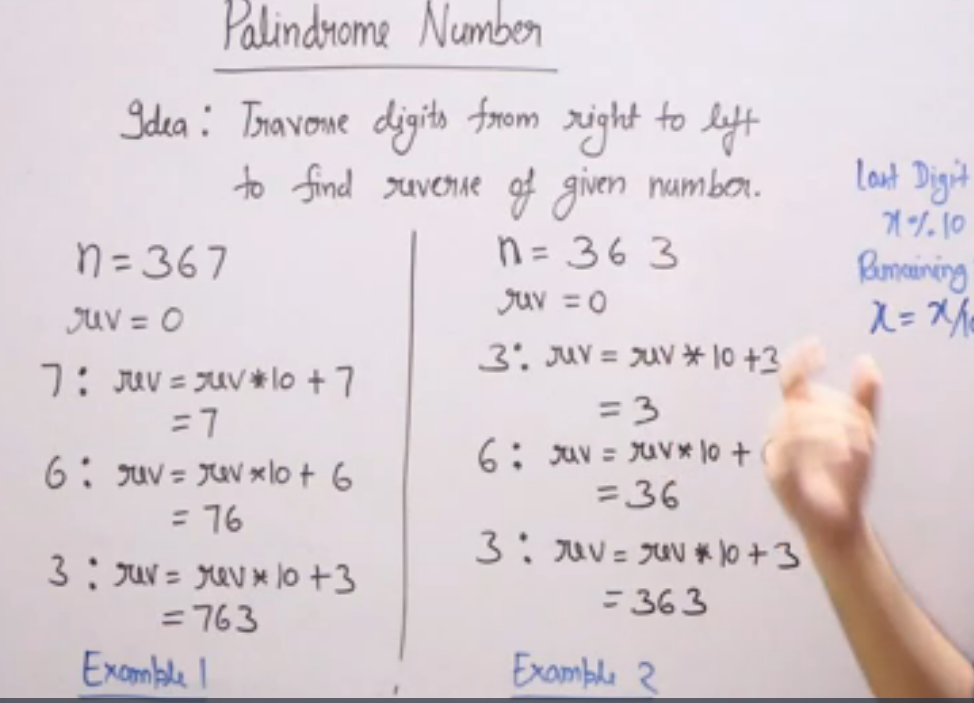 Palindrome Number
Idea: Traverse digits from right to left
to find reverse of given number.
n = 367
rev = 0
7: rev = rev*10 + 7
= 7
6: rev = rev*10 + 6
= 76
3: rev = rev*10 + 3
= 763
Example 1
n = 363
rev = 0
3: rev = rev*10 + 3
= 3
6: rev = rev*10 +
= 36
3: rev = rev*10 + 3
= 363
Example 2
Last Digit
x%10
Remaining
x = x/10